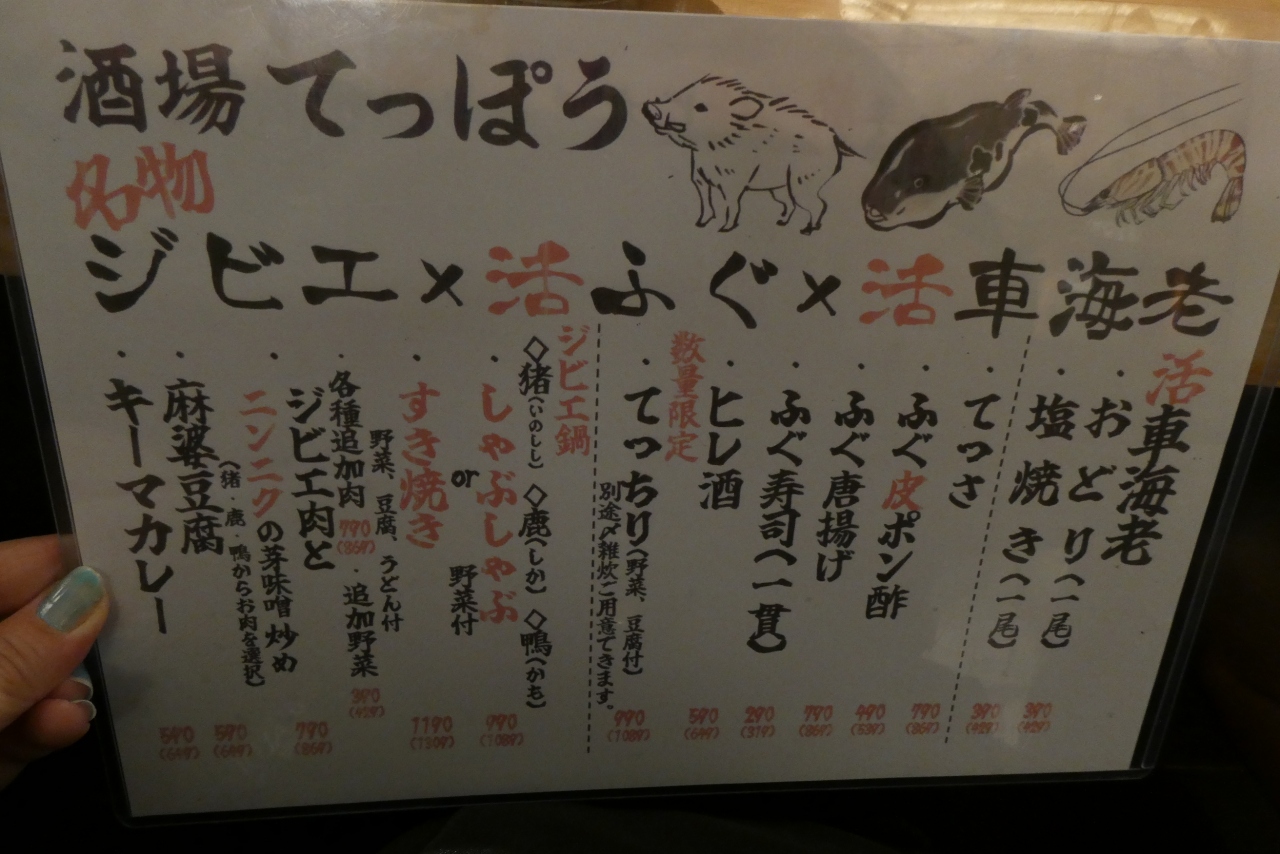 酒場 てっぽう
名物
ジビエ×活ふぐ×活車海老
活車海老
・おどり(一尾) 390 (429)
・塩焼き(一尾) 390 (429)
・てっさ 790 (869)
・ふぐ皮ポン酢 490 (539)
・ふぐ唐揚げ 790 (869)
・ふぐ寿司(一貫) 290 (319)
・ヒレ酒 590 (649)
数量限定
・てっちり(野菜、豆腐付) 990 (1089)
別途〆雑炊ご用意できます。
ジビエ鍋
◇猪(いのしし) ◇鹿(しか) ◇鴨(かも)
・しゃぶしゃぶ 野菜付 990 (1089)
or
・すき焼き 1190 (1309)
野菜、豆腐、うどん付
・各種追加肉 790 (869) ・追加野菜 390 (429)
・ジビエ肉と
ニンニクの芽味噌炒め 790 (869)
(猪・鹿・鴨からお肉を選択)
・麻婆豆腐 590 (649)
・キーマカレー 590 (649)